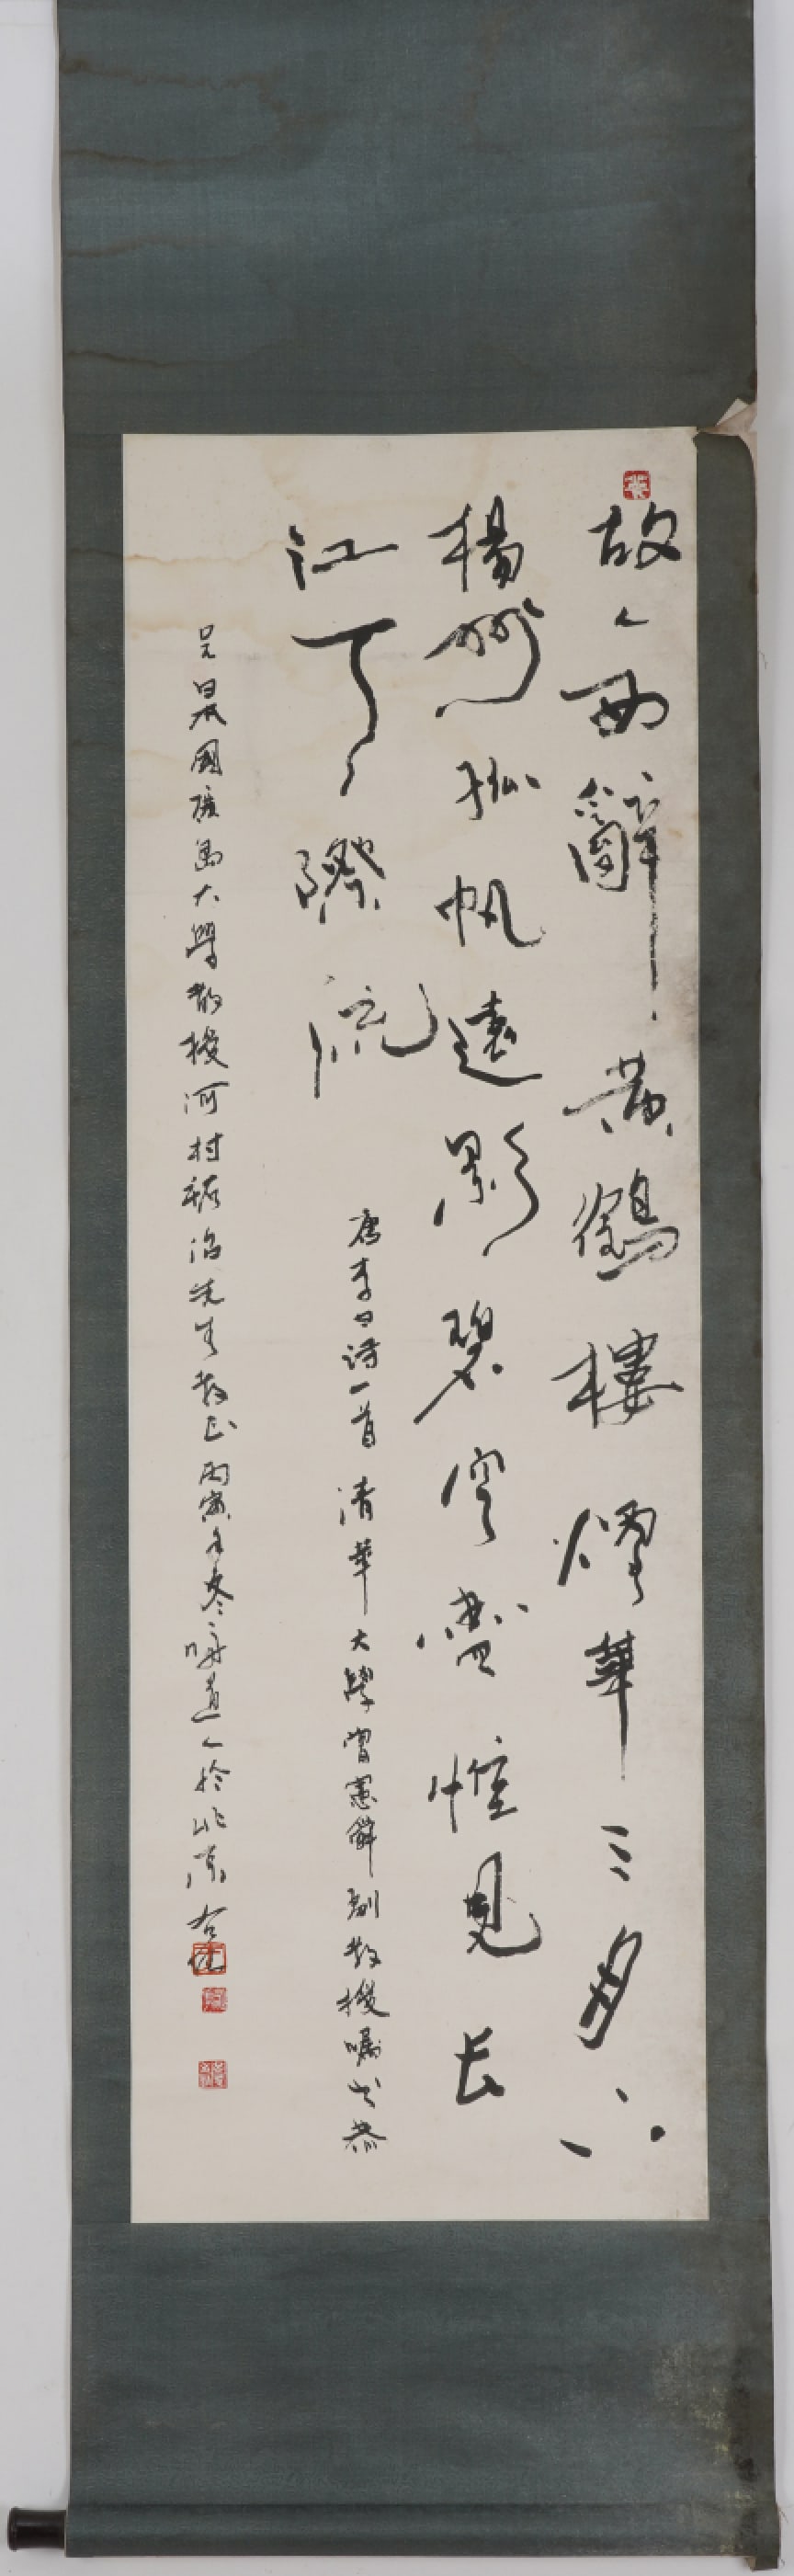 故人西辭黃鶴樓煙華三月下
楊州孤帆遠影碧空盡惟見長
江天際流
唐李白詩一首 清華大學曾憲 副教授囑書恭
呈日本國廣島大學教授河村 治先生教正 丙寅年冬 道人於北京